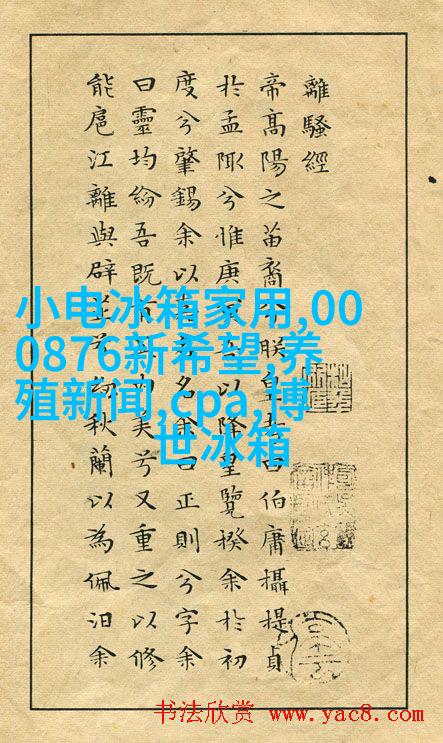 離騷經
帝高陽之苗裔兮朕皇考曰伯庸攝提貞
於孟陬兮惟庚吾以降皇覽揆余於初
度兮肇錫余以名余曰正則兮字余
曰靈均紛吾既有美兮又重之以修
能扈江離與辟芷兮紉秋蘭以為佩汩余
小电冰箱家用,00
0876新希望,养
殖新闻,cpa,博
世冰箱
书法欣赏 www.yac8.com